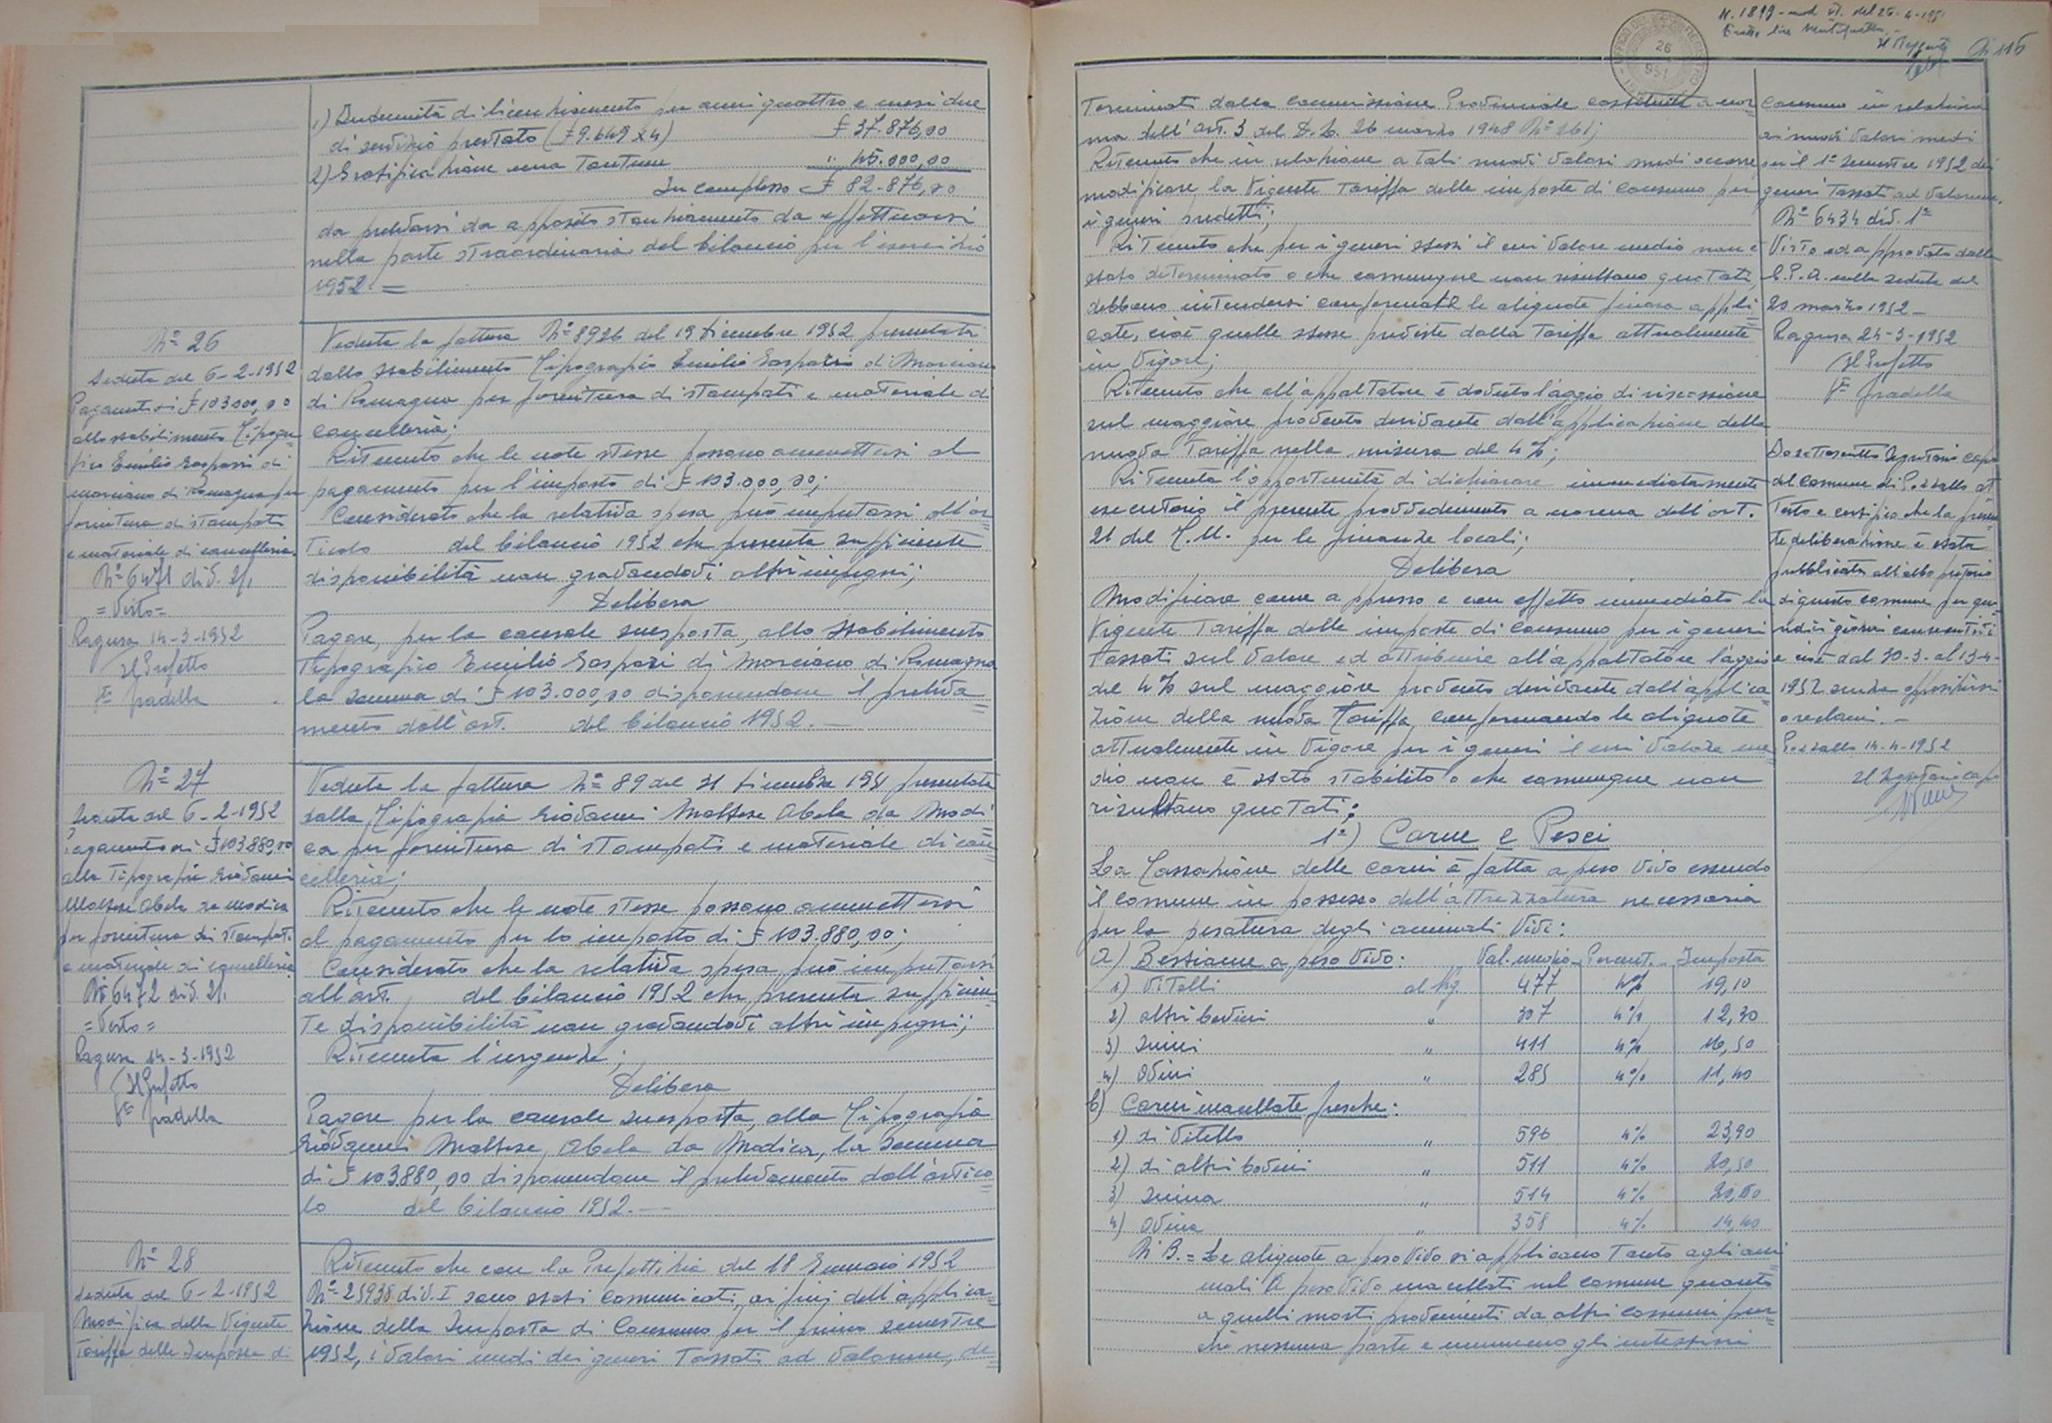 1) Indennità di licenziamento per anni quattro e mesi due
di servizio prestato (₤ 9.649 x 4) ₤ 37.876,00
2) Gratifica zione una Tantum " 45.000,00
In complesso ₤ 82.876,00
da prelevarsi da apposito stanziamento da effettuarsi
nella parte straordinaria del bilancio per l'esercizio
1952. =
N° 26
Seduta del 6-2-1952
Pagamento di ₤ 103000,00
allo stabilimento Tipogra
fico Emilio Gaspari di
Morciano di Romagna per
fornitura di stampati
e materiale di cancelleria
N° 6471 div. 2/1
= Visto =
Ragusa 14-3-1952
Il Prefetto
Fto Pradella
Veduta la fattura N° 8926 del 19 Dicembre 1952 presentata
dallo stabilimento Tipografico Emilio Gaspari di Morciano
di Romagna per fornitura di stampati e materiale di
cancelleria;
Ritenuto che le note stesse possono ammettersi al
pagamento per l'importo di ₤ 103.000,00;
Considerato che la relativa spesa può imputarsi all'ar=
ticolo del bilancio 1952 che presenta sufficiente
disponibilità non gravandovi altri impegni;
Delibera
Pagare, per la causale suesposta, allo stabilimento
Tipografico Emilio Gaspari di Morciano di Romagna
la somma di ₤ 103.000,00 disponendone il preleva=
mento dall'art. del bilancio 1952. —
N° 27
Seduta del 6-2-1952
Pagamento di ₤ 103.880,00
alla Tipografia Giovanni
Maltese Abela da Modica
per fornitura di stampati
e materiale di cancelleria
N° 6472 div. 2/1
= Visto =
Ragusa 14-3-1952
Il Prefetto
Fto Pradella
Veduta la fattura N° 89 del 31 Dicembre 1951 presentata
dalla Tipografia Giovanni Maltese Abela da Modi=
ca per fornitura di stampati e materiale di can=
celleria;
Ritenuto che le note stesse possono ammettersi
al pagamento per lo importo di ₤ 103.880,00;
Considerato che la relativa spesa può imputarsi
all'art. del bilancio 1952 che presenta sufficien=
te disponibilità non gravandovi altri impegni;
Ritenuta l'urgenza;
Delibera
Pagare per la causale suesposta, alla Tipografia
Giovanni Maltese Abela da Modica, la somma
di ₤ 103.880,00 disponendone il prelevamento dall'artico=
lo del bilancio 1952. —
N° 28
Seduta del 6-2-1952
Modifica della Vigente
Tariffa delle Imposte di
Ritenuto che con la Prefettizia del 18 Gennaio 1952
N° 25938 div. I sono stati comunicati, ai fini dell'applica=
zione della Imposta di Consumo per il primo semestre
1952, i valori medi dei generi Tassati ad Valorem, de=
N. 1899 - mod VI. del 26-4-195
Esatte lire
N° 116
26
951
terminati dalla commissione Provinciale costituita a nor
ma dell'art. 3 del D.L. 26 marzo 1948 N° 261;
Ritenuto che in relazione a tali nuovi valori medi occorre
modificare la Vigente Tariffa delle imposte di consumo per
i generi predetti;
Ritenuto che per i generi stessi il cui valore medio non è
stato determinato o che comunque non risultano quotati,
debbano intendersi confermate le aliquote finora appli=
cate, cioè quelle stesse previste dalla Tariffa attualmente
in Vigore;
Ritenuto che all'appaltatore è dovuto l'aggio di riscossione
sul maggiore provento derivante dall'applicazione della
nuova Tariffa nella misura del 4%;
Ritenuta l'opportunità di dichiarare immediatamente
esecutorio il presente provvedimento a norma dell'art.
21 del T.U. per le finanze locali;
Delibera
Modificare come appresso e con effetto immediato la
Vigente Tariffa delle imposte di consumo per i generi
Tassati sul Valore ed attribuire all'appaltatore l'aggio
del 4% sul maggiore provento derivante dall'applica=
zione della nuova Tariffa, confermando le aliquote
attualmente in Vigore per i generi il cui Valore me=
dio non è stato stabilito o che comunque non
risultano quotati:
1°) Carne e Pesci
La Tassazione delle carni è fatta a peso vivo essendo
il Comune in possesso dell'attrezzatura necessaria
per la pesatura degli animali vivi:
a) Bestiame a peso vivo: Val. medio Percent. Imposta
1) Vitelli al Kg. 477 4% 19,10
2) altri bovini " 307 4% 12,30
3) suini " 411 4% 16,50
4) Ovini " 285 4% 11,40
b) Carni macellate fresche:
1) di Vitello " 596 4% 23,90
2) di altri bovini " 511 4% 20,50
3) suina " 514 4% 20,60
4) Ovina " 358 4% 14,40
N.B. = Le aliquote a peso vivo si applicano tanto agli ani
mali a peso vivo macellati nel comune quanto
a quelli morti provenienti da altri comuni pur=
chè nessuna parte e nemmeno gli intestini
Consumo in relazione
ai nuovi Valori medi
per il 1° semestre 1952 dei
generi Tassati ad Valorem.
N° 6434 div. 1a
Visto ed approvato dalla
G.P.A. nella seduta del
20 marzo 1952 —
Ragusa 24-3-1952
Il Prefetto
Fto Pradella
Io sottoscritto Segretario capo
del Comune di Pozzallo at
testo e certifico che la presen
te deliberazione è stata
pubblicata all'albo pretorio
di questo comune per qui=
ndici giorni consecutivi
e cioè dal 30-3- al 13-4-
1952 senza opposizioni
o reclami. —
Pozzallo 14-4-1952
Il Segretario capo